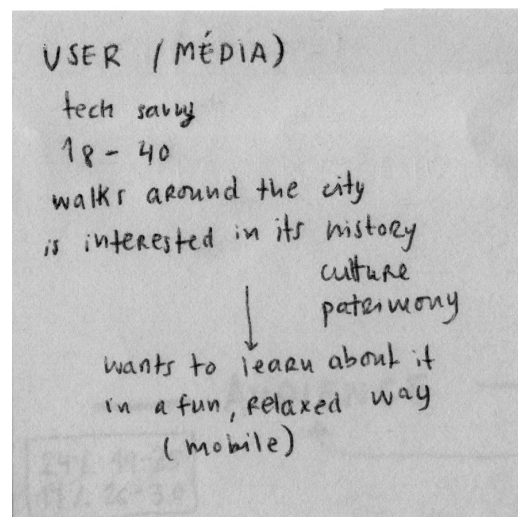 USER / MÉDIA)
tech savvy
18 - 40
walks around the city
is interested in its history
culture
patrimony
wants to learn about it
in a fun, relaxed way
(mobile)
AUDIENCE